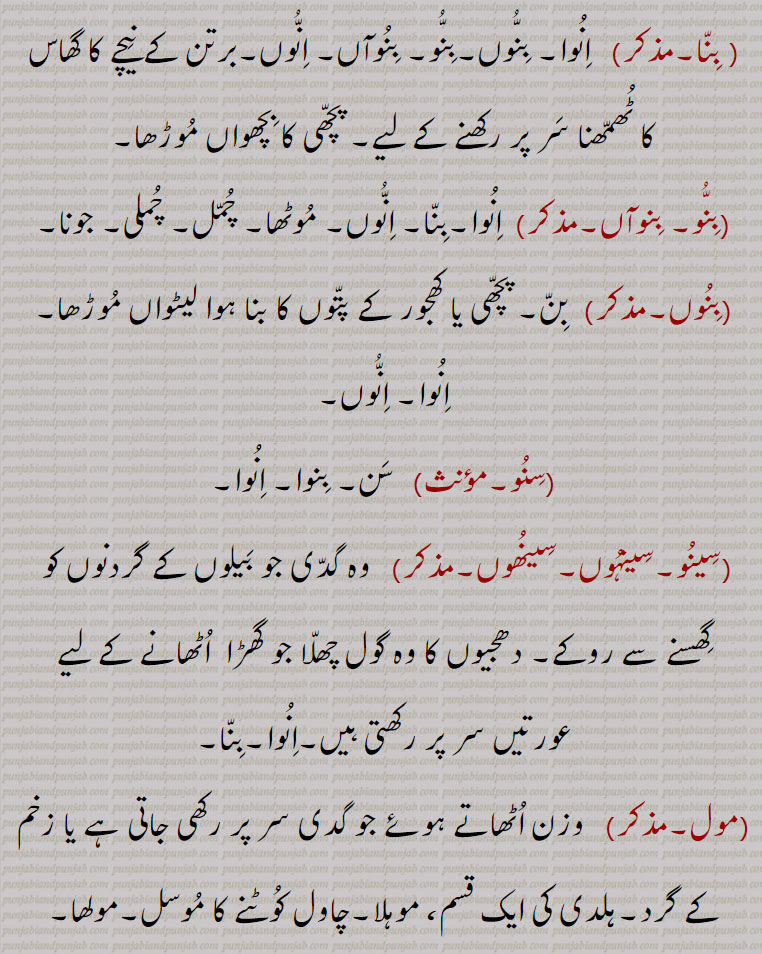 ( بِنّا۔مذکر) اِنُوا۔ بِنُّوں۔بِنُّو۔ بِنُوآں۔ اِنُّوں۔برتن کے نیچے کا گھاس
کا ٹُھمّھنا سَر پر رکھنے کے لیے۔ پچّھی کا بِچھواں مُوڑھا۔
(بِنُّو۔ بِنوآں۔مذکر) اِنُوا۔بِنّا۔ اِنُّوں۔ مُوٹھا۔ چُمّل۔ چُملی۔ جونا۔
(بِنُوں۔مذکر) بِنّ۔ پچّھی یا کھجور کے پتّوں کا بنا ہوا لیٹواں مُوڑھا۔
اِنُوا۔ اِنُّوں۔
(سِنُو۔مؤنث) سَن۔ بِنوا۔ اِنُوا۔
(سِینُو۔سِینہُوں۔سِینُھوں۔مذکر) وہ گدّی جو بَیلوں کے گردنوں کو
گِھسنے سے روکے۔ دھجیوں کا وہ گول چھلّا جو گھڑا اُٹھانے کے لیے
عورتیں سر پر رکھتی ہیں۔اِنُوا۔بِنّا۔
(مول۔مذکر) وزن اُٹھاتے ہوئے جو گدی سر پر رکھی جاتی ہے یا زخم
کے گرد۔ ہلدی کی ایک قسم، موہلا۔چاول کوُٹنے کا مُوسل۔مولھا۔